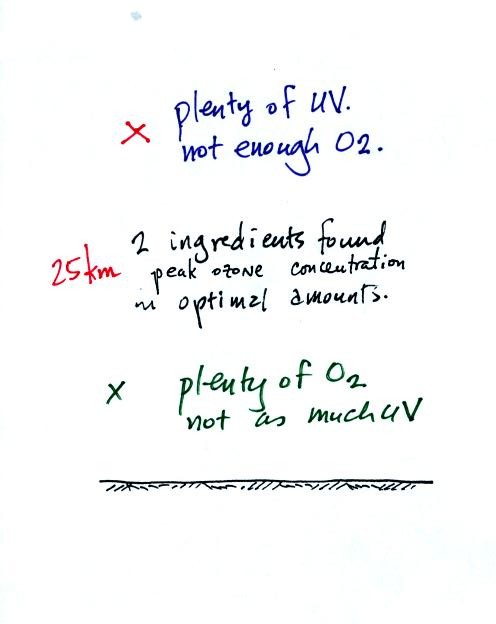 x plenty of UV.
not enough O2.
2 ingredients found
25km peak ozone concentration
in optimal amounts.
x plenty of O2
not as much UV